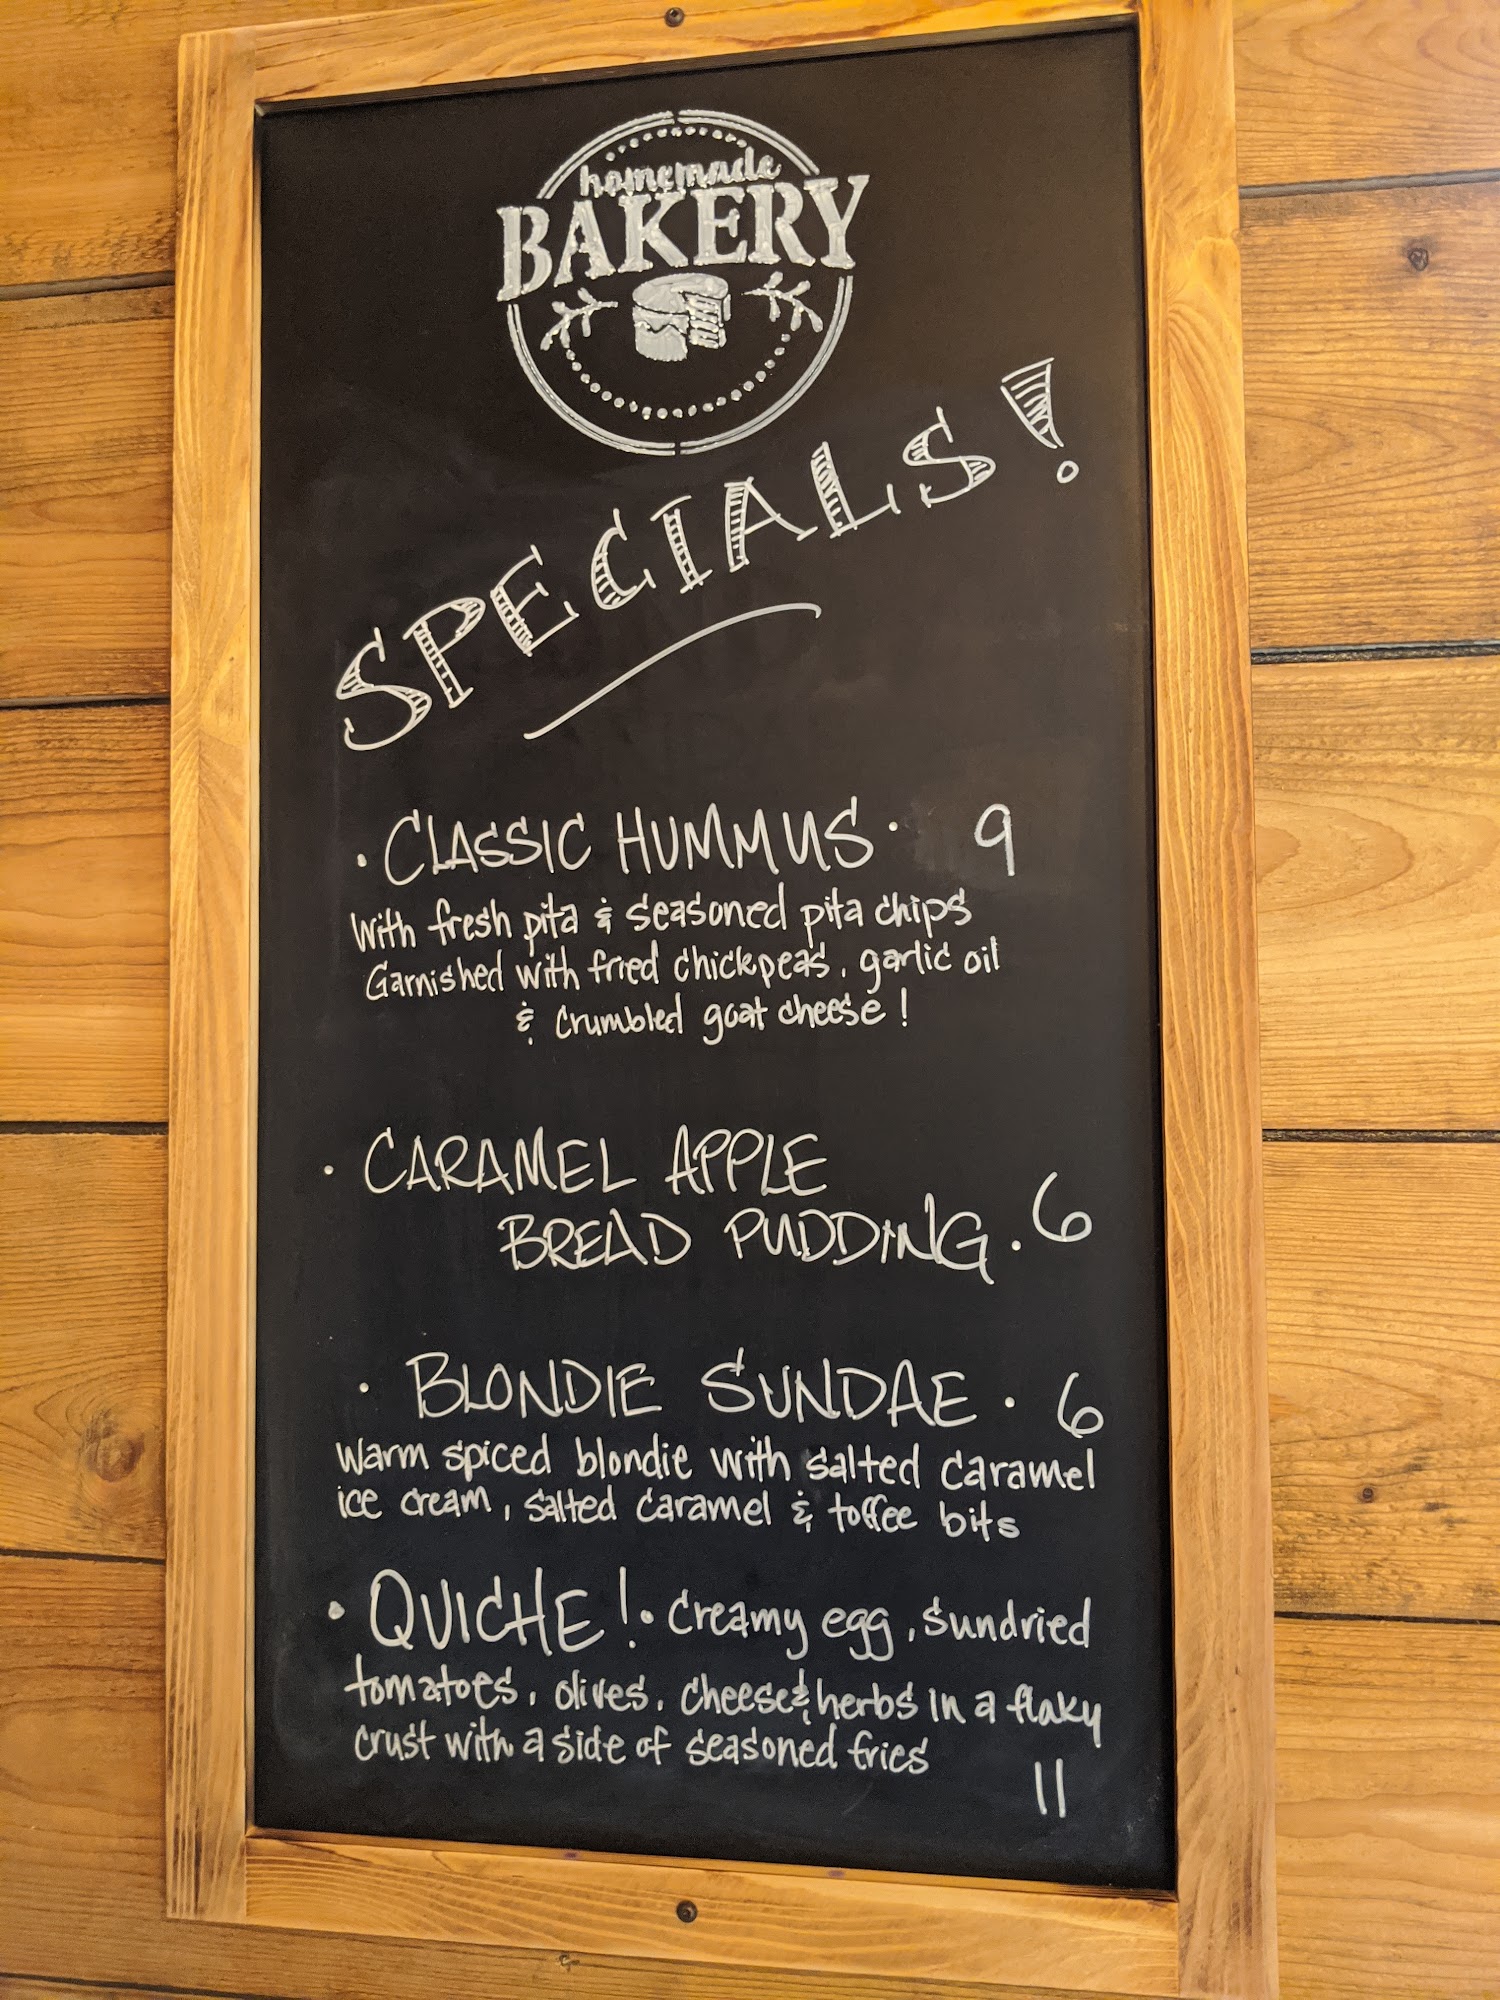 homemade
BAKERY
SPECIALS!
· CLASSIC HUMMUS · 9
With fresh pita & seasoned pita chips
Garnished with fried chickpeas, garlic oil
& crumbled goat cheese!
· CARAMEL APPLE
BREAD PUDDING · 6
· BLONDIE SUNDAE · 6
Warm spiced blondie with salted caramel
ice cream, salted caramel & toffee bits
· QUICHE! · Creamy egg, sundried
tomatoes, olives, cheese & herbs in a flaky
crust with a side of seasoned fries
11